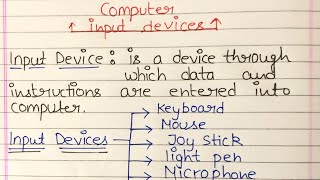 Computer
↑ input devices ↑
Input Device : is a device through
which data and
instructions are entered into
computer.
Keyboard
Mouse
Input Devices → Joy stick
light pen
Microphone